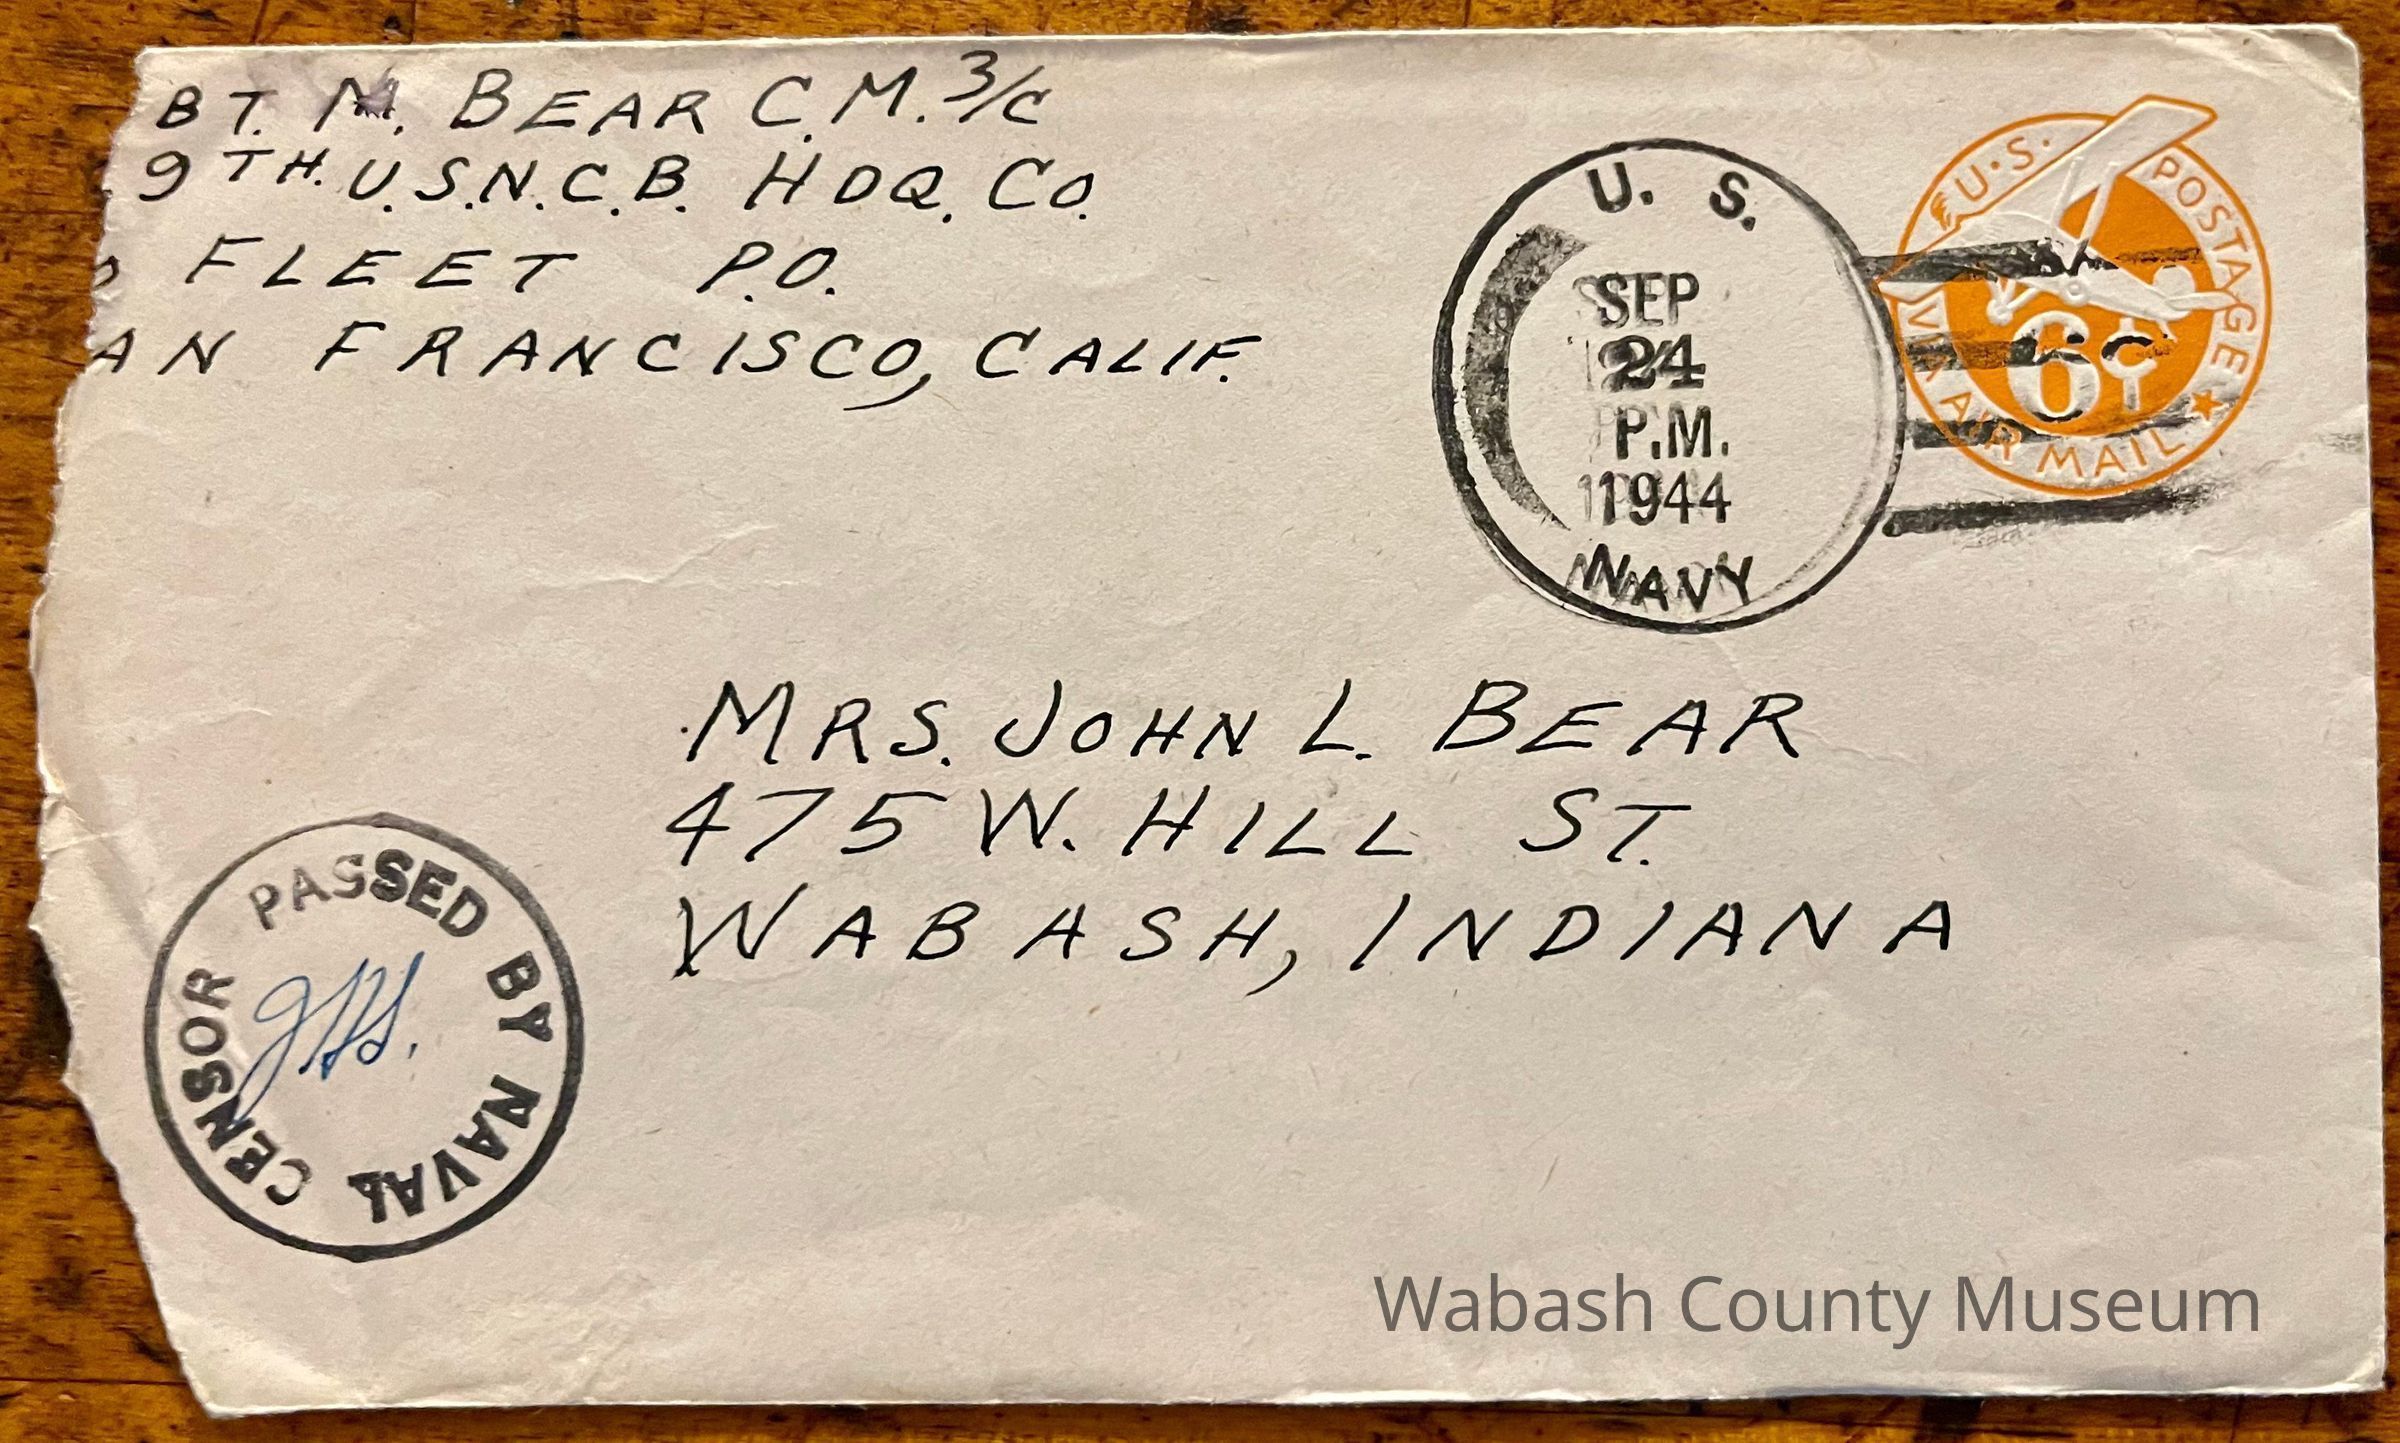 BT. M. BEAR C.M. 3/C
9TH. U.S.N.C.B. HDQ. CO.
FLEET P.O.
AN FRANCISCO, CALIF.
U. S.
SEP
24
P.M.
1944
NAVY
U.S. POSTAGE
6¢
VIA AIR MAIL
MRS. JOHN L. BEAR
475 W. HILL ST.
WABASH, INDIANA
PASSED BY NAVAL CENSOR
Wabash County Museum